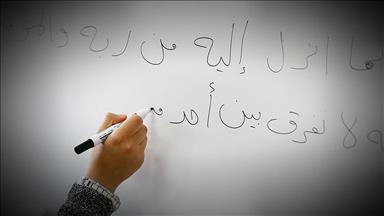 بما انزل إليه من ربه والمو
له لا نفرق بين أحد م